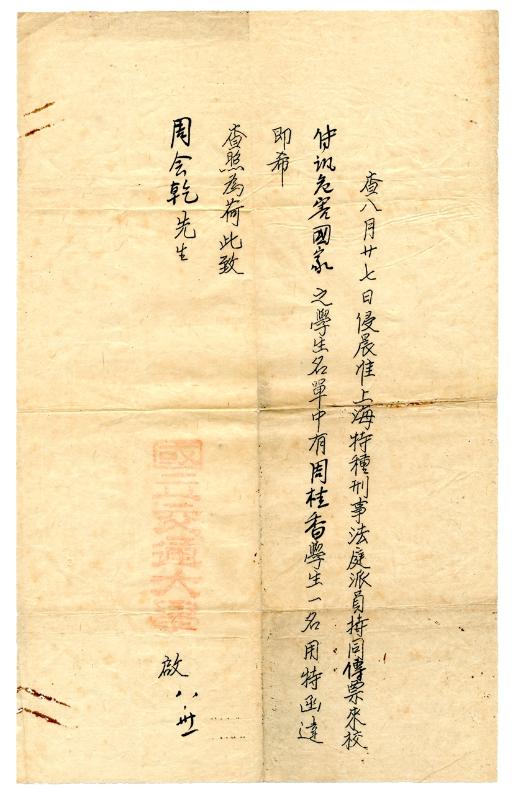 查八月廿七日侵晨准上海特種刑事法庭派員持同傳票來校
傳訊危害國家之學生名單中有周桂香學生一名用特函達
即希
查照為荷此致
周会乾先生
國立交通大學
啟 八·卅一